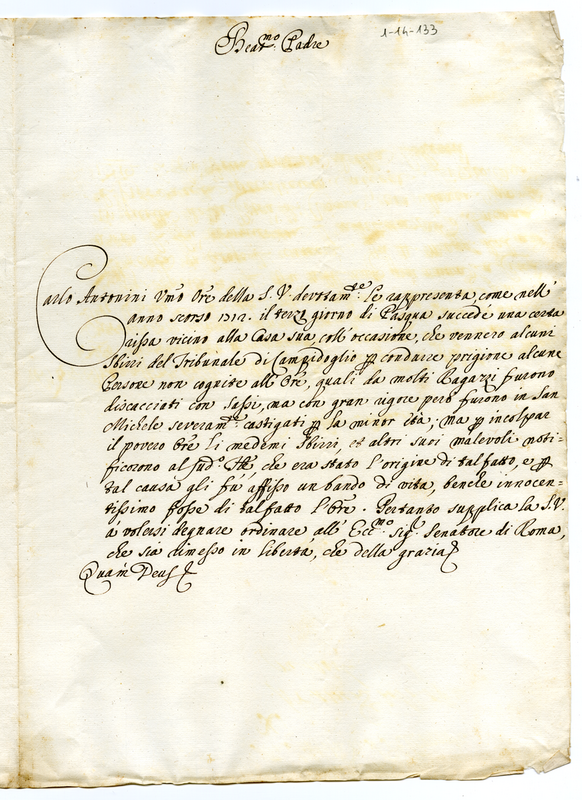 1-14-133
Beat.mo Padre
Carlo Antonini Umo Ore della S. V. devotam.te le rappresenta, come nell'
anno scorso 1712. il terzo giorno di Pasqua succede una certa
rissa vicino alla Casa sua, coll'occasione, che vennero alcuni
Sbirri del Tribunale di Campidoglio p condurre prigione alcune
Persone non cognite all'Ore, quali da molti Ragazzi furono
discacciati con sassi, ma con gran rigore però furono in San
Michele severam.te castigati p la minor età; ma p incolpar
il povero Ore li medemi Sbirri, et altri suoi malevoli noti=
ficorono al sud.o Tle, che era stato l'origine di tal fatto, e p
tal causa gli fù affisso un bando di vita, benche innocen=
tissimo fosse di tal fatto l'Ore. Pertanto supplica la S.V.
à volersi degnare ordinare all'Ecc.mo Sig.r Senatore di Roma,
che sia dimesso in libertà, che della grazia
Quam Deus